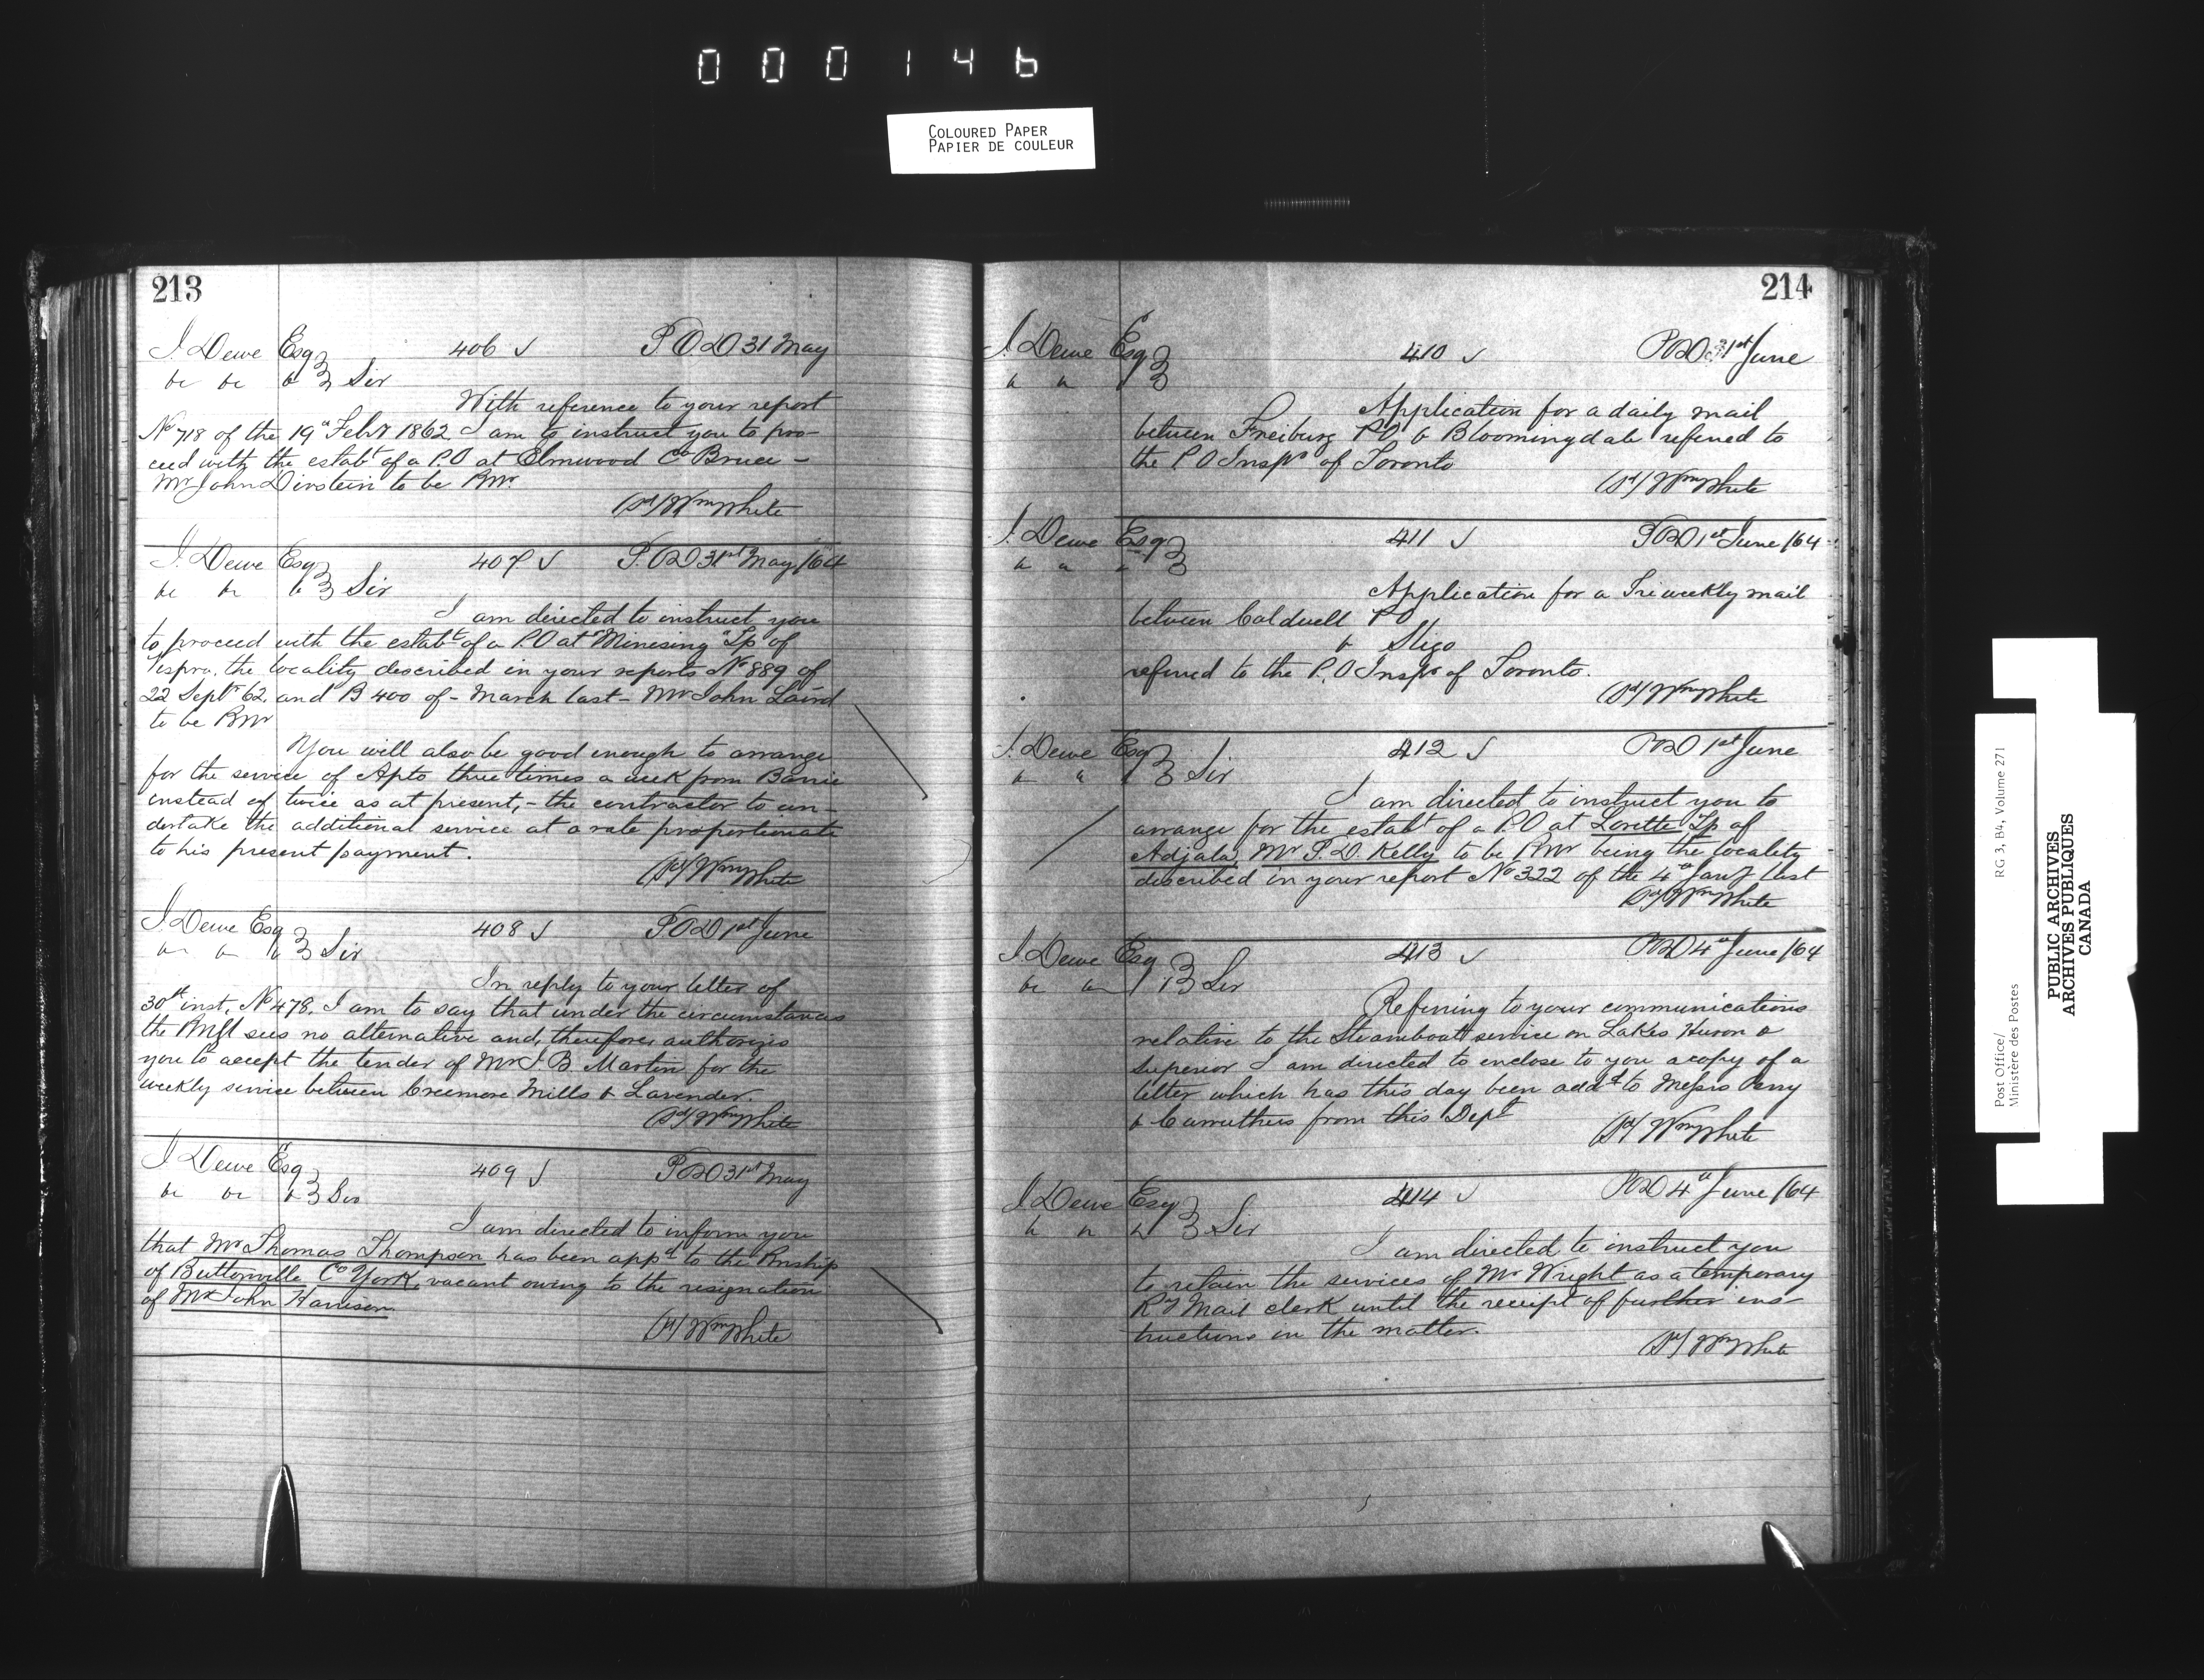 000146
COLOURED PAPER
PAPIER DE COULEUR
213
J. Dewe Esq 406 P O D 31 May
&c &c & Sir
With reference to your report
No 718 of the 19th Feby 1862 I am to instruct you to pro-
ceed with the estabt of a P.O at Elmwood Co Bruce -
Mr John Dirstein to be PMr.
(Sd/ Wm White
J. Dewe Esq 407 P.O D 31st May /64
&c &c & Sir
I am directed to instruct you
to proceed with the estabt of a P.O at "Minesing" Tp of
Vespra, the locality described in your reports No 889 of
22 Septr 62, and B 400 of - March last - Mr John Laird
to be PMr
You will also be good enough to arrange
for the service of Apto three times a week from Barrie
instead of twice as at present, - the contractor to un-
dertake the additional service at a rate proportionate
to his present payment.
(Sd/ Wm White
J. Dewe Esq 408 P.O D 1st June
&c &c & Sir
In reply to your letter of
30th inst, No 478, I am to say that under the circumstances
the PMGl sees no alternative and, therefore, authorizes
you to accept the tender of Mr J. B. Martin for the
weekly service between Creemore Mills & Lavender.
(Sd/ Wm White
J. Dewe Esq 409 P O D 31st May
&c &c & Sir
I am directed to inform you
that Mr Thomas Thompson has been appd to the PMship
of Buttonville Co York, vacant owing to the resignation
of Mr John Harrison
(Sd/ Wm White
214
J. Dewe Esq 410 P O D 31st June
& &
Application for a daily mail
between Freiburg P O & Bloomingdale referred to
the P O Inspr of Toronto
(Sd/ Wm White
J. Dewe Esq 411 P O D 1st June /64
& & &
Application for a Tri weekly mail
between Caldwell P O
& Sligo
referred to the P.O Inspr of Toronto.
(Sd/ Wm White
J. Dewe Esq 412 P O D 1st June
& & Sir
I am directed to instruct you to
arrange for the estabt of a P.O at Lorette Tp of
Adjala, Mr P. D. Kelly to be PMr being the locality
described in your report No 322 of the 4th Jany last
(Sd/ Wm White
J. Dewe Esq 413 P O D 4th June /64
&c &c Sir
Referring to your communications
relative to the Steamboat service on Lakes Huron &
Superior I am directed to enclose to you a copy of a
letter which has this day been addd to Messrs Perry
& Carruthers from this Dept
(Sd/ Wm White
J. Dewe Esq 414 P O D 4th June /64
& & & Sir
I am directed to instruct you
to retain the services of Mr Wright as a temporary
Ry Mail clerk until the receipt of further ins-
tructions in the matter.
(Sd/ Wm White
Post Office/
Ministère des Postes
RG 3, B4, Volume 271
PUBLIC ARCHIVES
ARCHIVES PUBLIQUES
CANADA